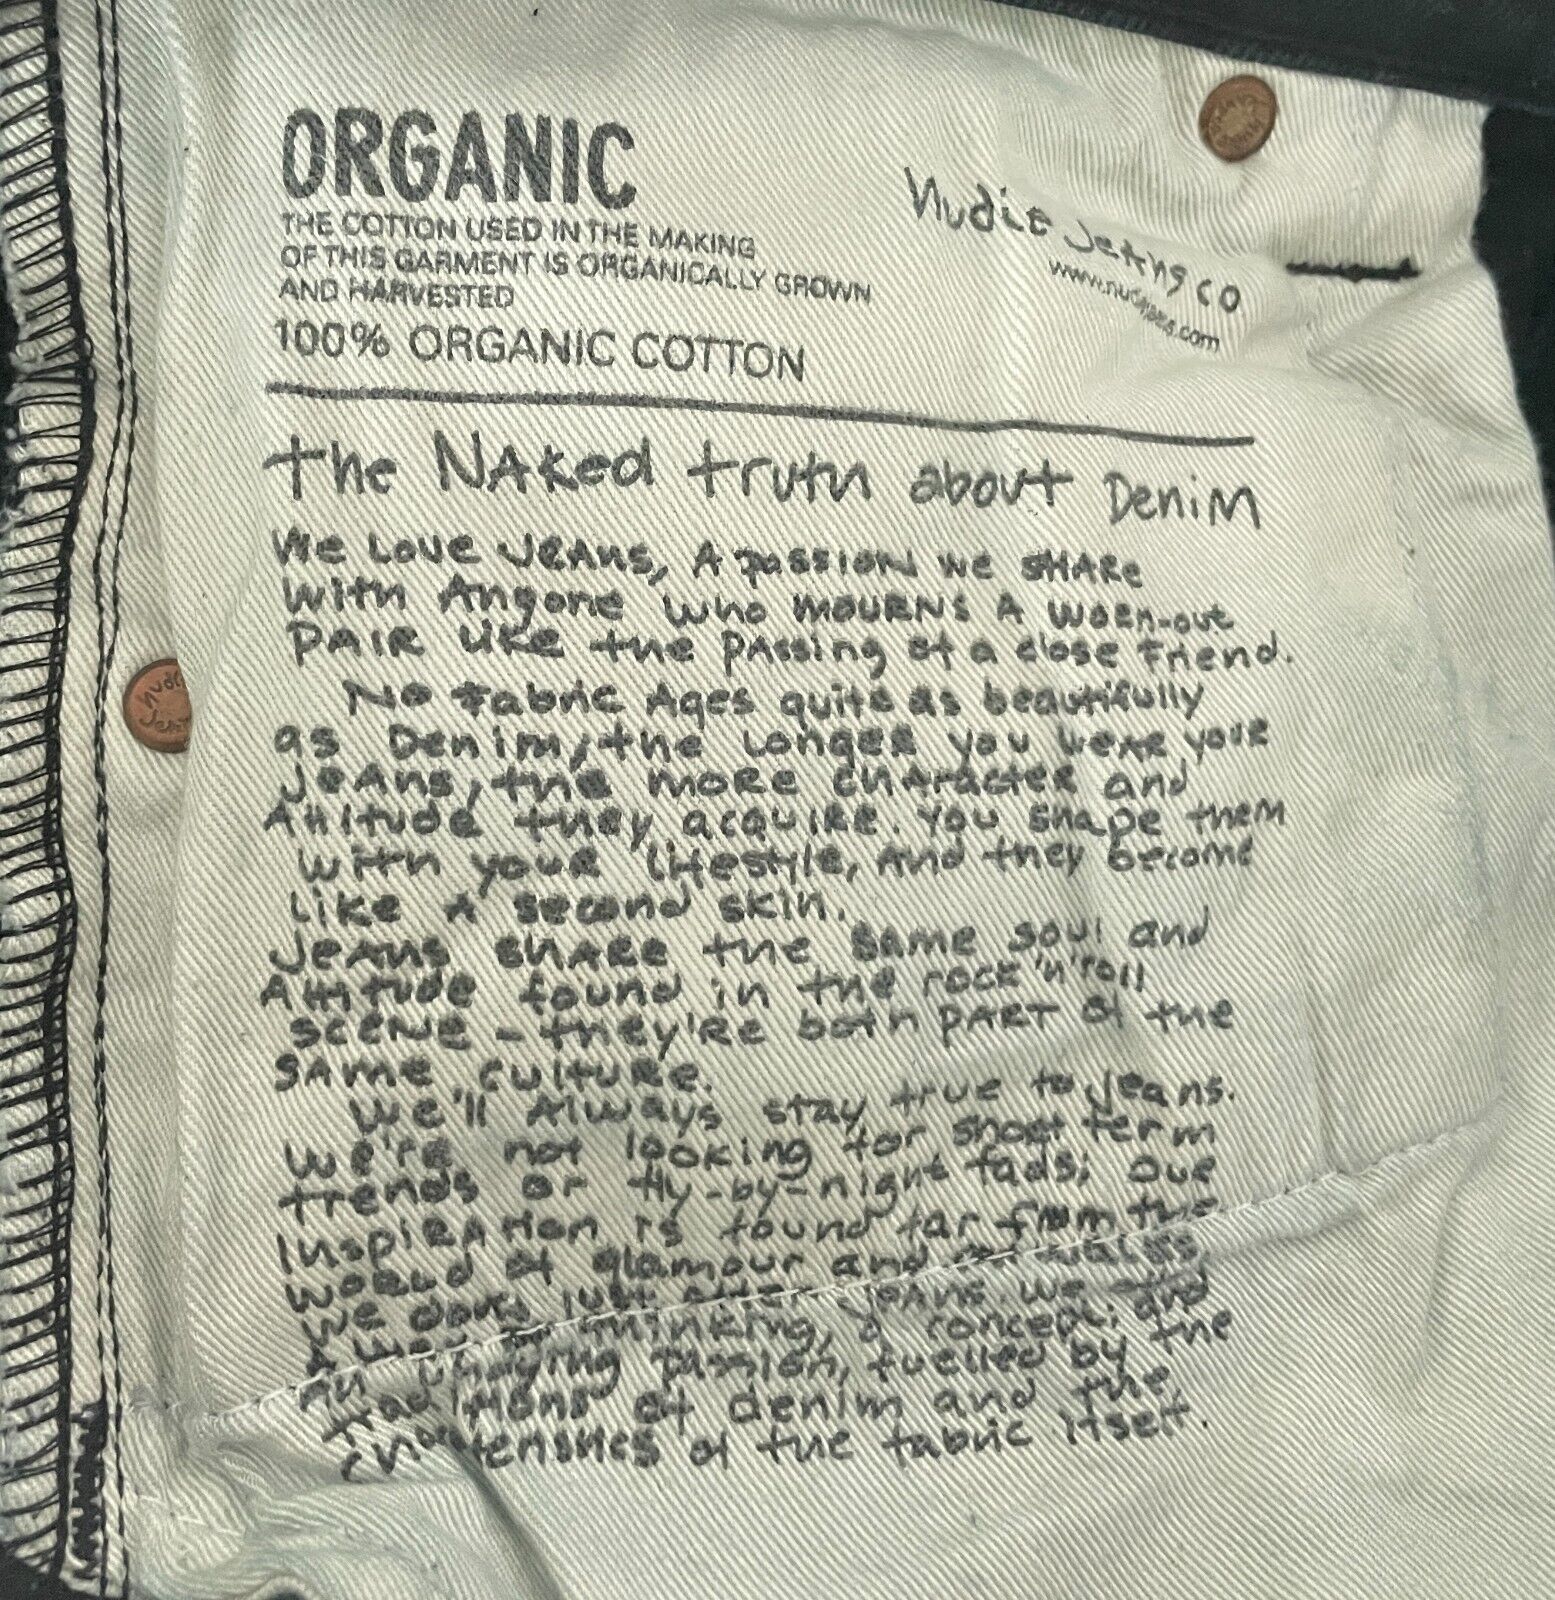 ORGANIC
THE COTTON USED IN THE MAKING
OF THIS GARMENT IS ORGANICALLY GROWN
AND HARVESTED
100% ORGANIC COTTON
Nudie Jeans co
the NAked truth about Denim
We Love JeAns, A passion we SHARe
with Anyone who MOURNS A WORN-out
PAIR like the PAssing of a close friend.
No fabric Ages quite as beautifully
as Denim, the Longer you WeAR your
JeAns, the more CHARacter and
Attitude they acquire. You shape them
with your lifestyle, And they become
Like A second skin.
JeAns SHARe the same soul and
Attitude found in the rock 'n' roll
scene - they're both PART of the
SAme culture.
We'll Always stay true to jeans.
We're not looking for short term
trends or fly-by-night fads; our
InspiRAtion is found far from the
WORLD of glamour and
We don't just offer JeAns. We
A way of thinking, a concept, and
An undying passion, fuelled by the
traditions of denim and the
characteristics of the fabric itself.
nudie
Jeans